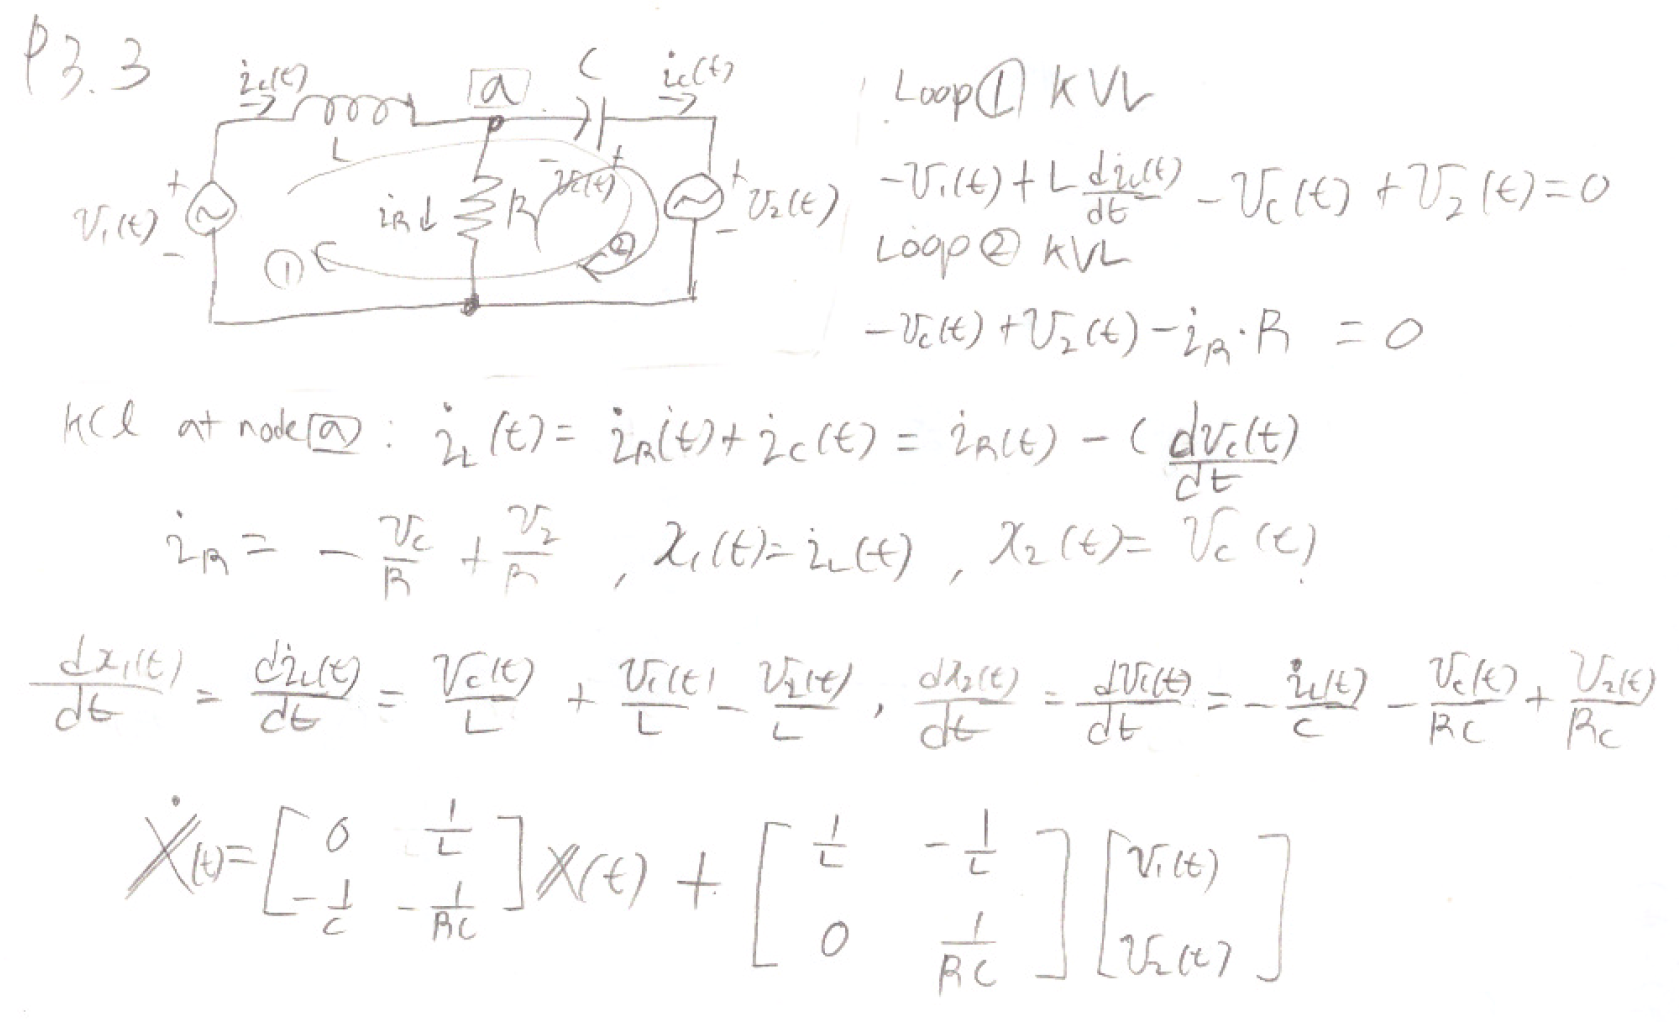 P3.3
i_L(t) a C i_c(t)
L
+ v_1(t) - i_R↓ R - v_c(t) + + v_2(t) -
① ②
Loop ① KVL
-v_1(t) + L di_L(t)/dt - v_c(t) + v_2(t) = 0
Loop ② KVL
-v_c(t) + v_2(t) - i_R·R = 0
KCL at node a : i_L(t) = i_R(t) + i_c(t) = i_R(t) - C dv_c(t)/dt
i_R = - v_c/R + v_2/R , x_1(t) = i_L(t) , x_2(t) = v_c(t)
dx_1(t)/dt = di_L(t)/dt = v_c(t)/L + v_1(t)/L - v_2(t)/L , dx_2(t)/dt = dv_c(t)/dt = - i_L(t)/C - v_c(t)/RC + v_2(t)/RC
Ẋ(t) = [0 1/L; -1/C -1/RC] X(t) + [1/L -1/L; 0 1/RC] [v_1(t); v_2(t)]